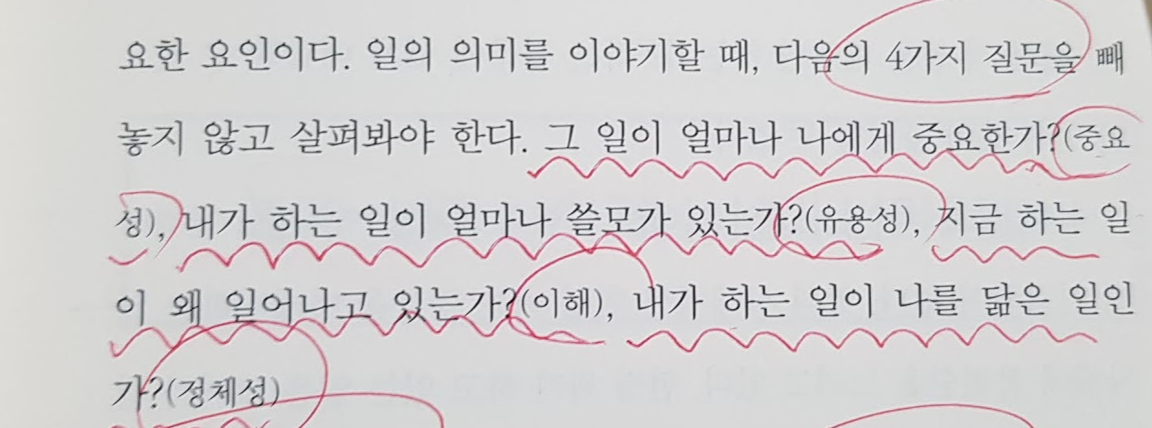 요한 요인이다. 일의 의미를 이야기할 때, 다음의 4가지 질문을 빼
놓지 않고 살펴봐야 한다. 그 일이 얼마나 나에게 중요한가?(중요
성), 내가 하는 일이 얼마나 쓸모가 있는가?(유용성), 지금 하는 일
이 왜 일어나고 있는가?(이해), 내가 하는 일이 나를 닮은 일인
가?(정체성)